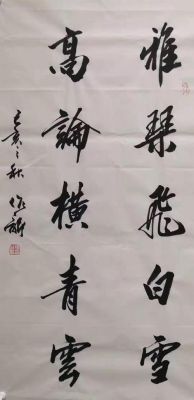 雅琴飛白雪
高論橫青雲
己亥之秋